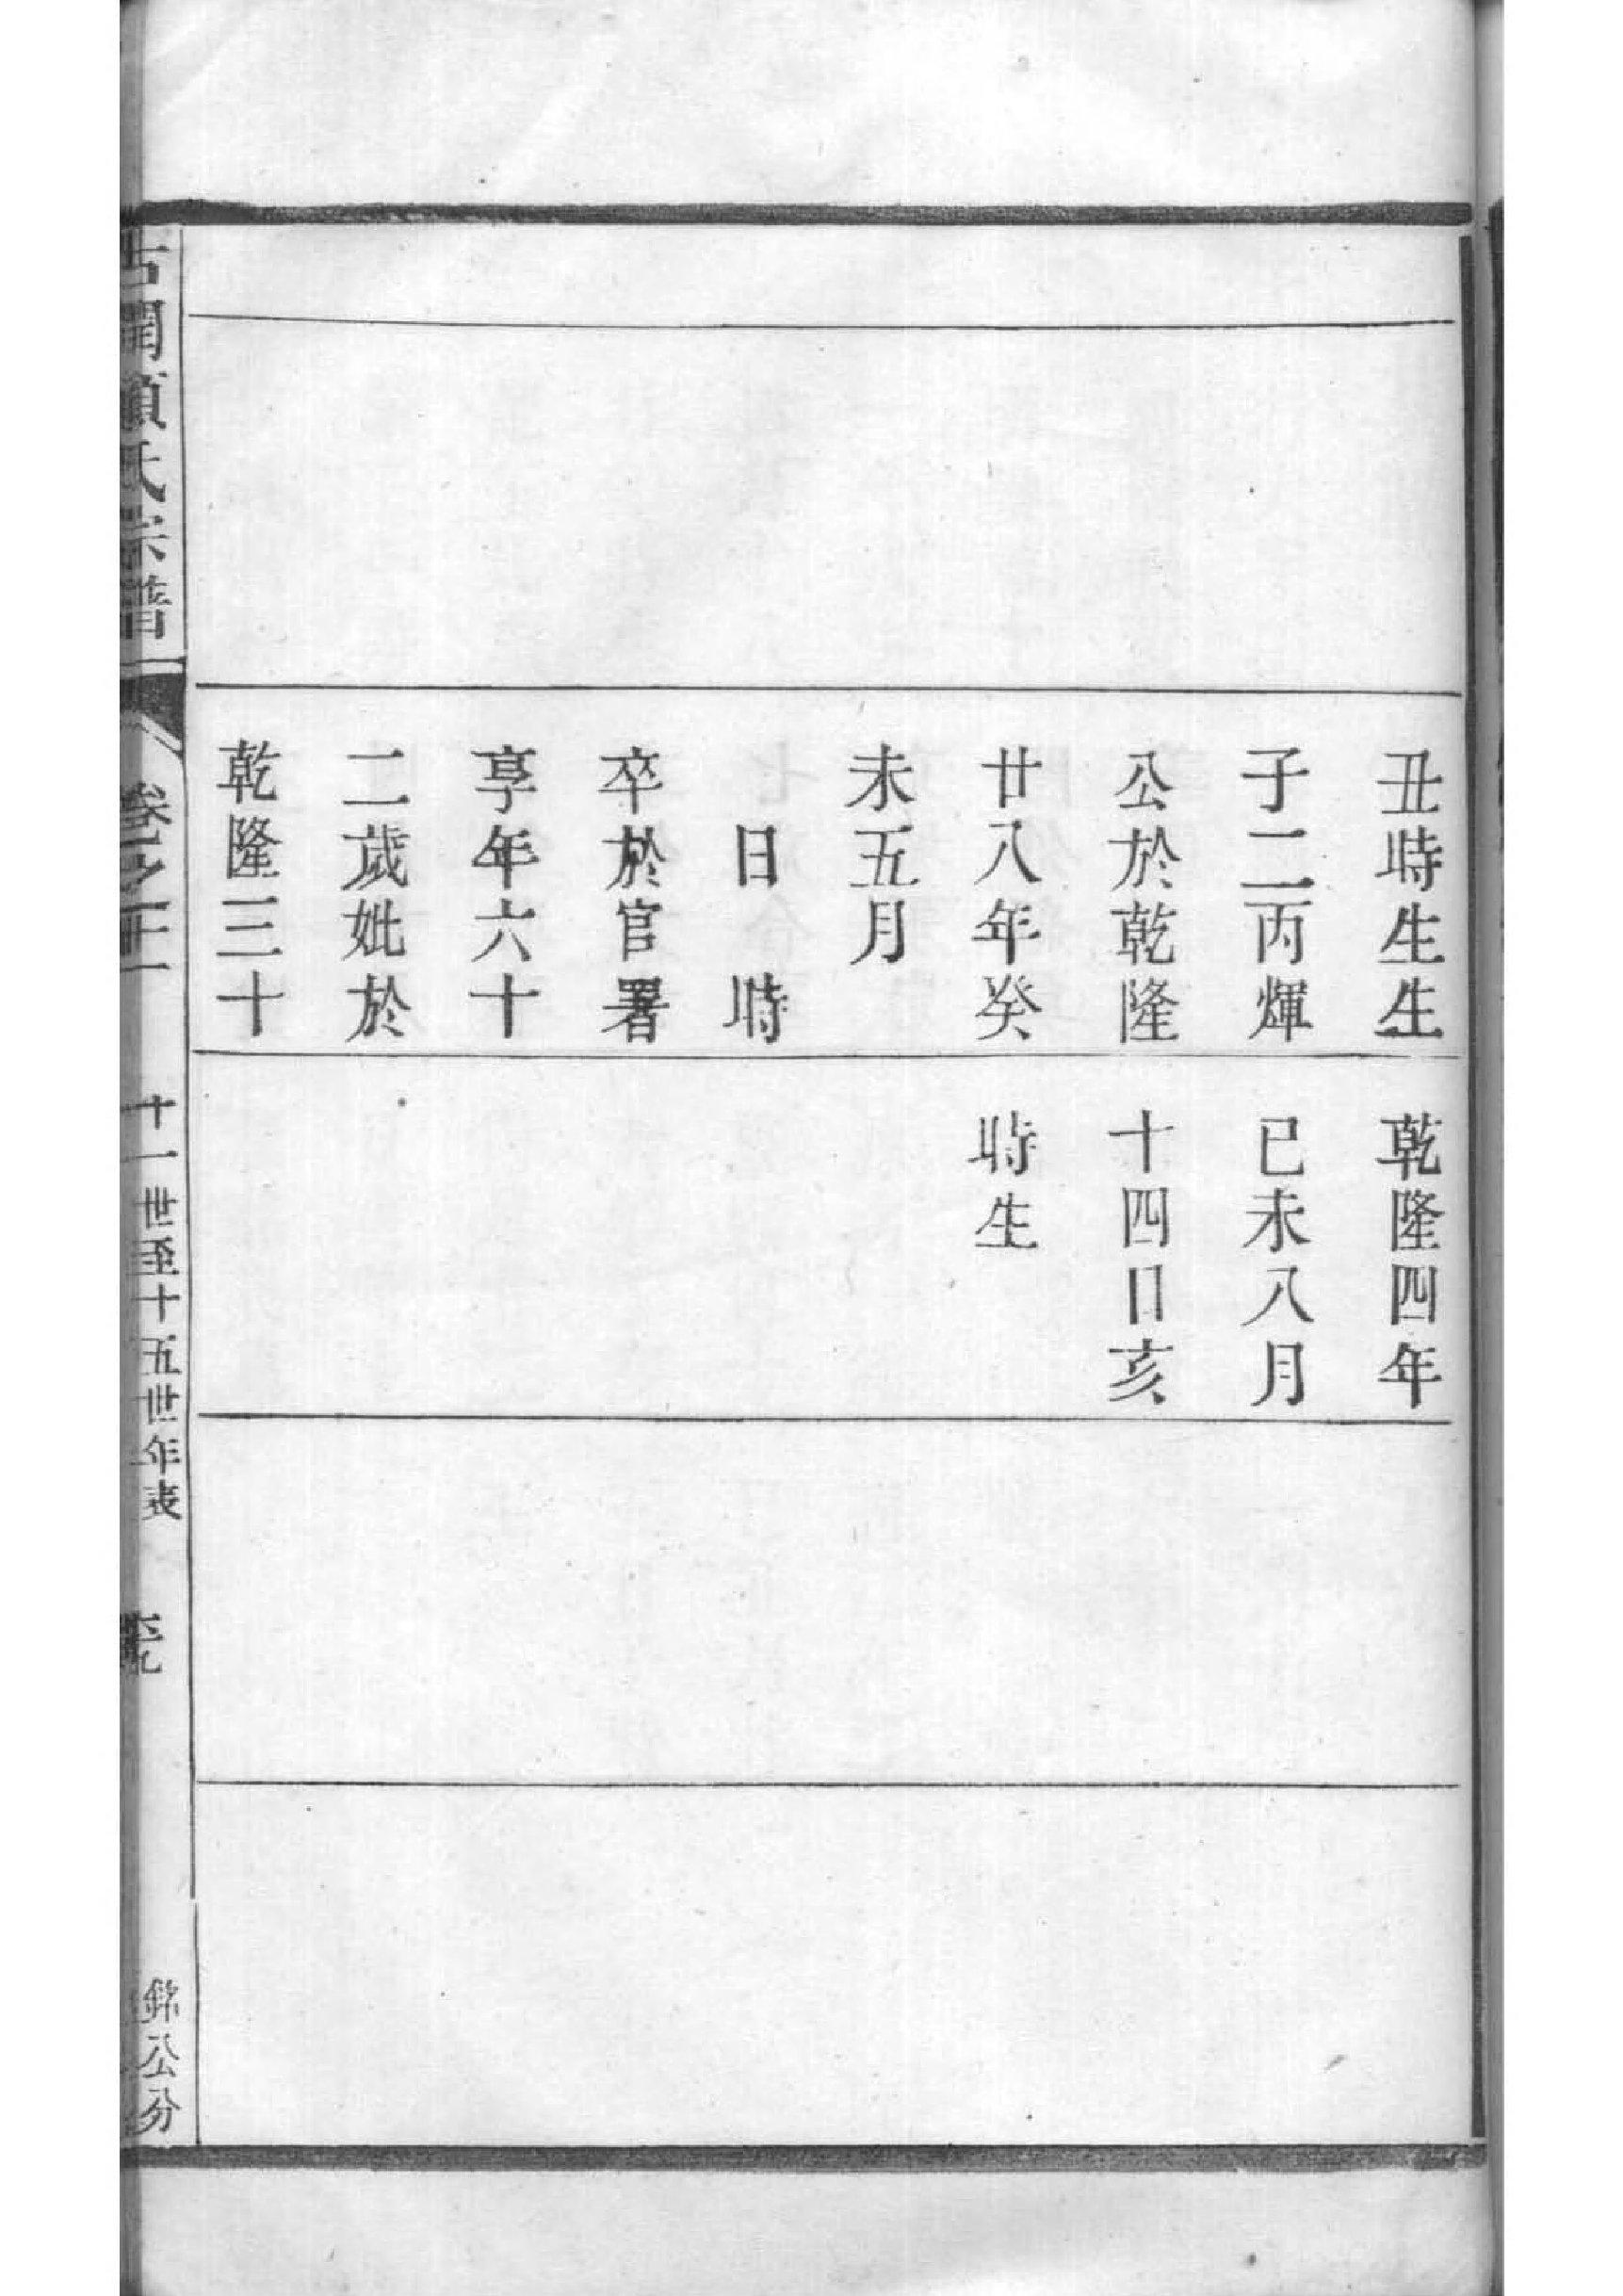 丑時生生
子二丙輝
公於乾隆
廿八年癸
未五月
日　時
卒於官署
享年六十
二歲妣於
乾隆三十
乾隆四年
已未八月
十四日亥
時生
氏宗譜
卷之
十一世至十五世年表
銘公分